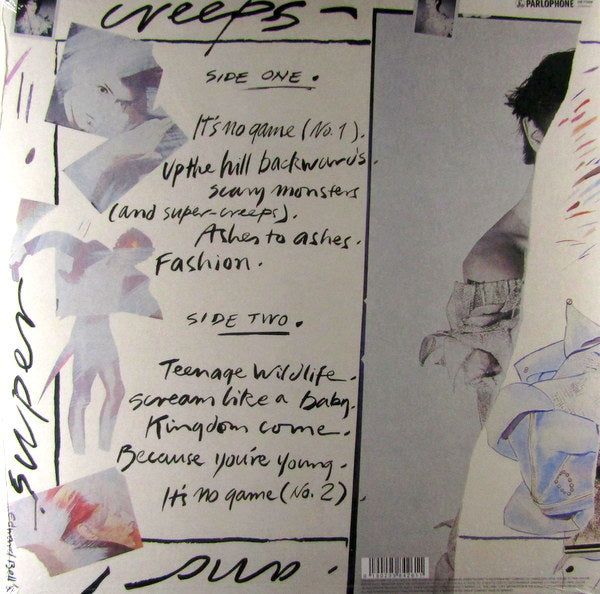 creeps
PARLOPHONE
SIDE ONE.
It's no game (No. 1).
Up the hill backwards.
scary monsters
(and super-creeps).
Ashes to ashes.
Fashion.
SIDE TWO.
Teenage Wildlife.
scream like a baby.
Kingdom come.
Because you're young.
It's no game (No. 2).
super
and
Edward Bell